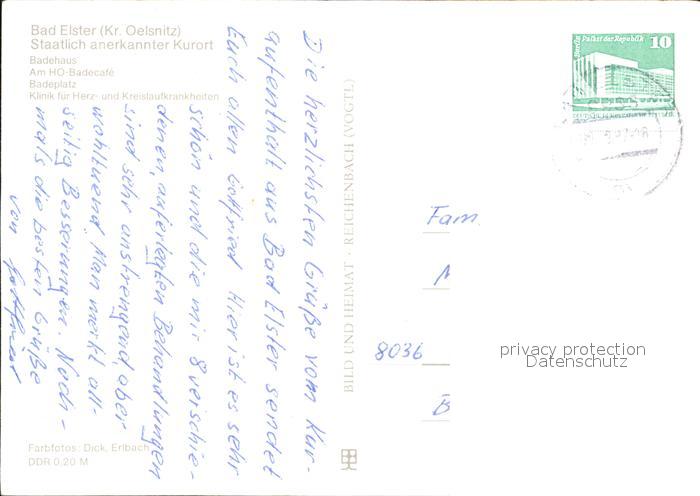 Bad Elster (Kr. Oelsnitz)
Staatlich anerkannter Kurort
Badehaus
Am HO-Badecafé
Badeplatz
Klinik für Herz- und Kreislaufkrankheiten
Die herzlichsten Grüße vom Kur-
aufenthalt aus Bad Elster sendet
Euch allen Gottfried. Hier ist es sehr
schön und die mir 8 verschie-
denen, auferlegten Behandlungen
sind sehr anstrengend, aber
wohltuend. Man merkt all-
seitig Besserungen. Noch-
mals die besten Grüße
von Gottfried
Farbfotos: Dick, Erlbach
DDR 0,20 M
BILD UND HEIMAT · REICHENBACH (VOGTL)
Berlin Palast der Republik
10
Fam.
8036
B
privacy protection
Datenschutz